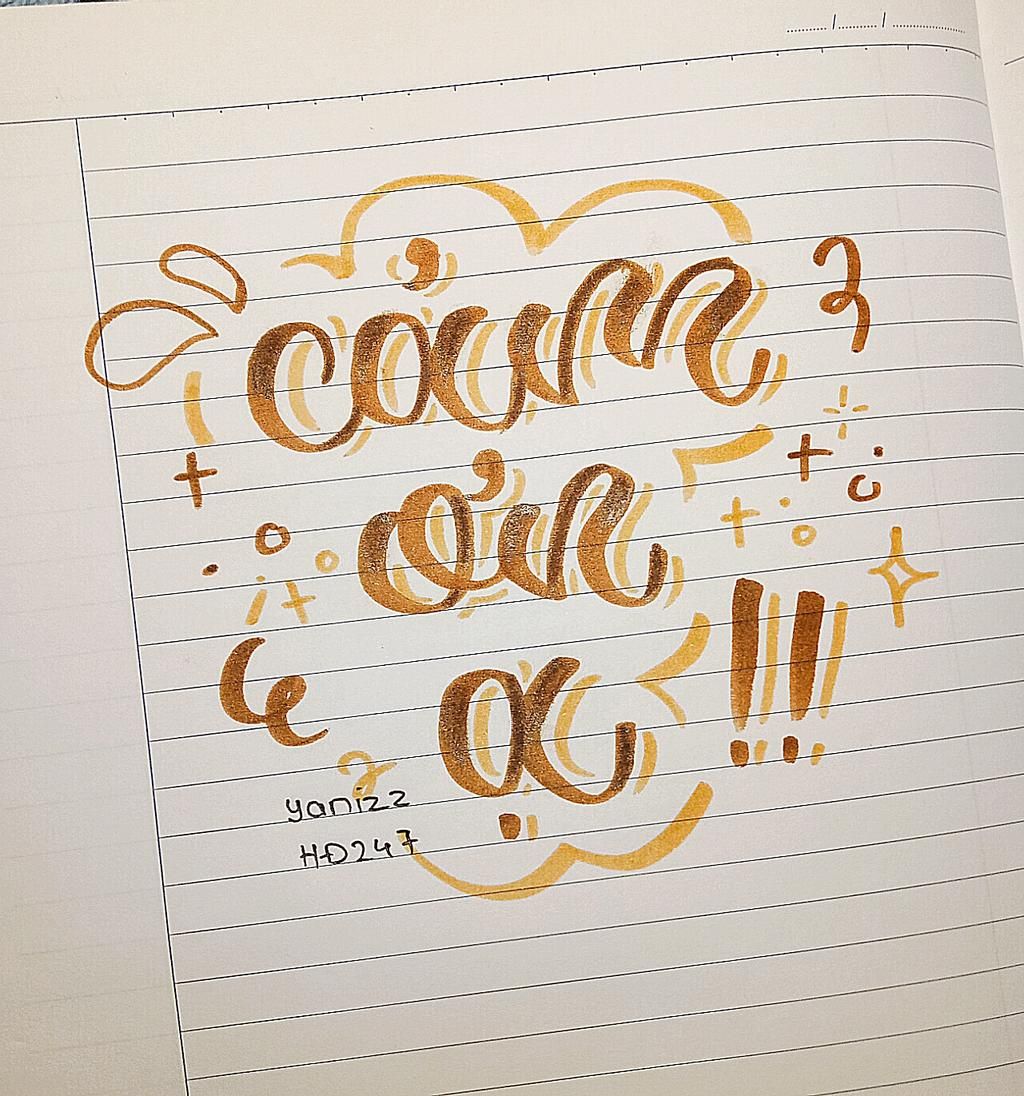 cảm
ơn
ạ !!
yanizz
HĐ247